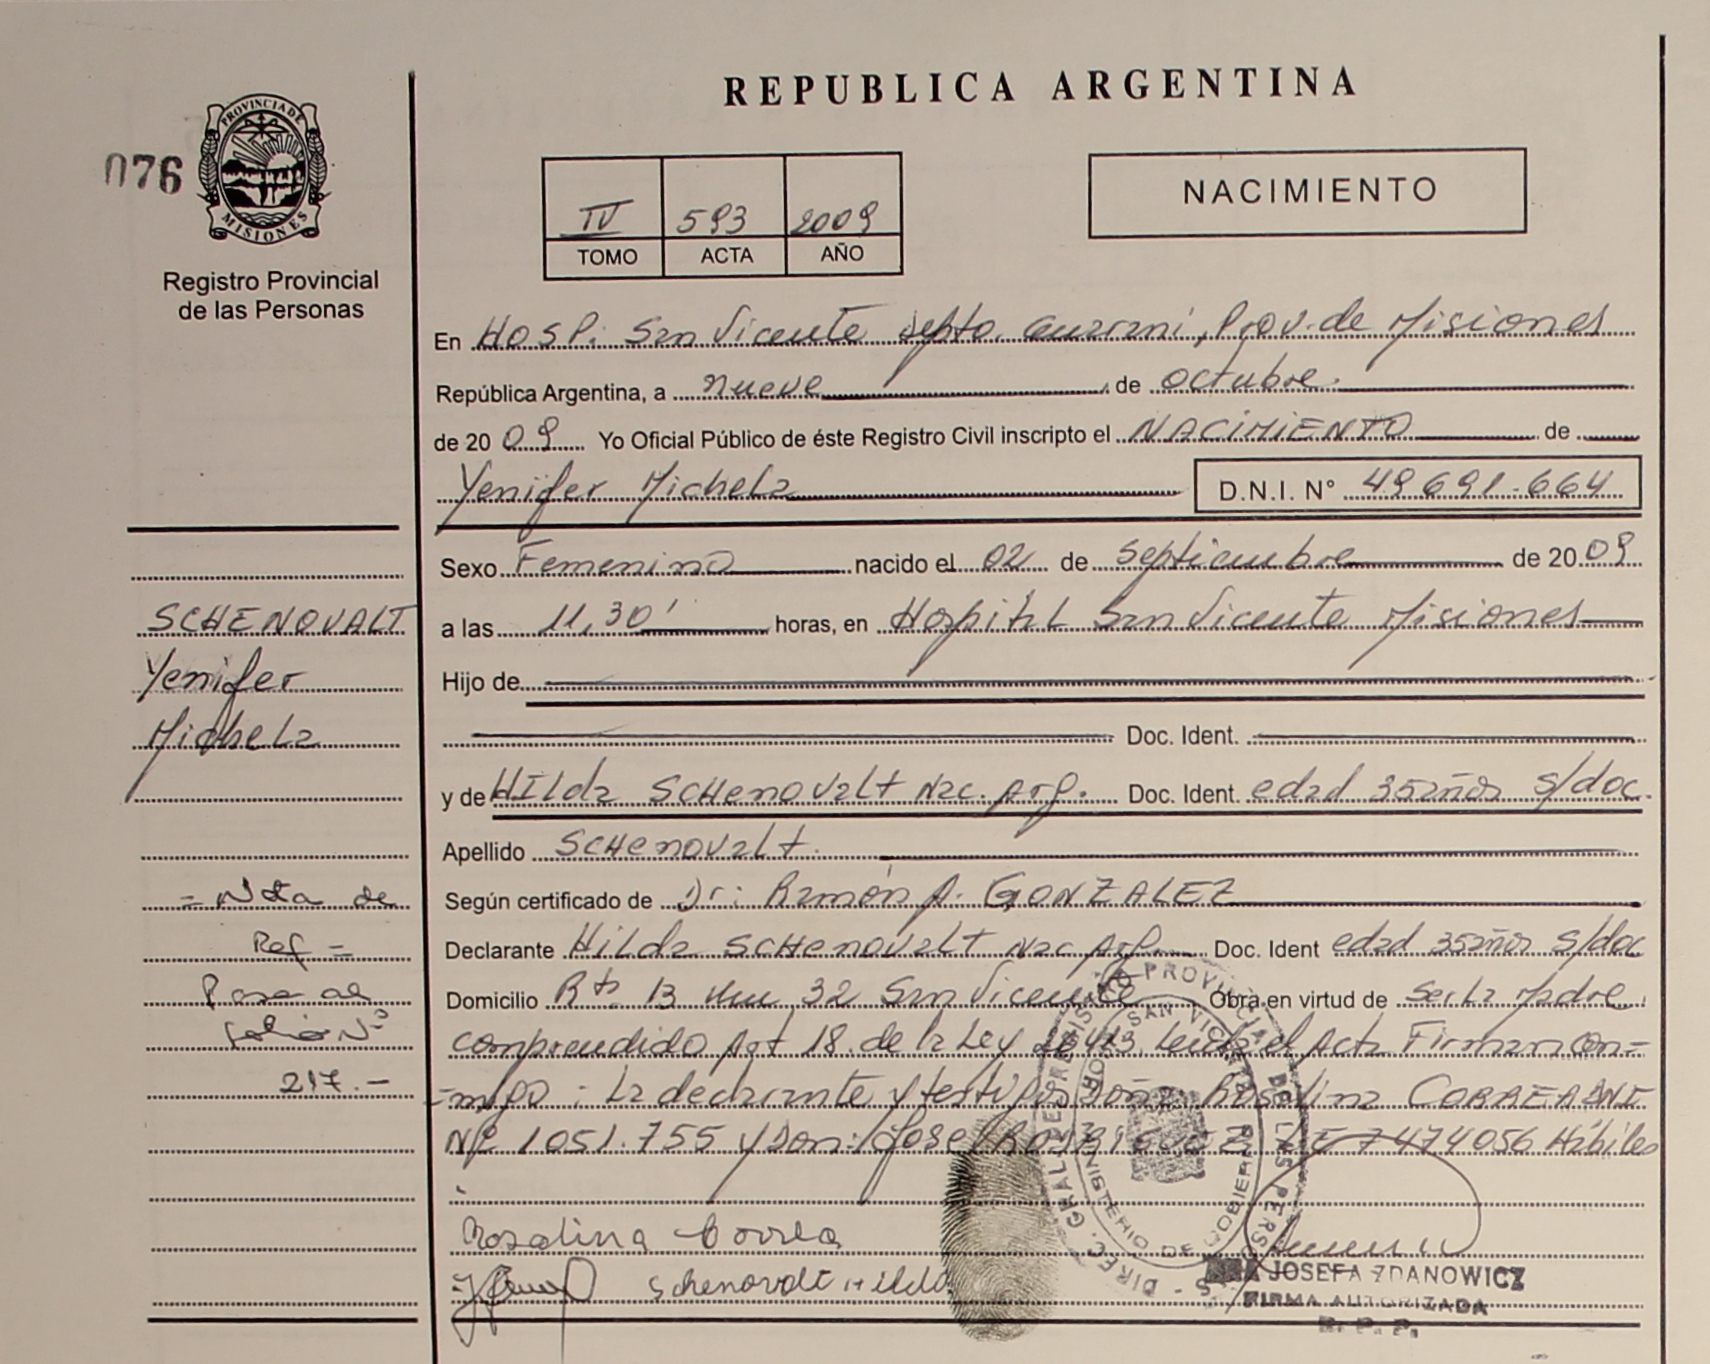 REPUBLICA ARGENTINA
076
PROVINCIA DE
MISIONES
Registro Provincial
de las Personas
IV 593 2009
TOMO ACTA AÑO
NACIMIENTO
En Hosp. San Vicente Depto. Guaraní, Prov. de Misiones
República Argentina, a nueve de octubre
de 2009 Yo Oficial Público de éste Registro Civil inscripto el NACIMIENTO de
Yenifer Michela D.N.I. Nº 49691.664
Sexo Femenino nacido el 02 de Septiembre de 2009
a las 11,30' horas, en Hospital San Vicente Misiones
Hijo de
Doc. Ident.
y de Hilda SCHENOVALT Nac. Arg. Doc. Ident. edad 35 años s/doc.
Apellido SCHENOVALT
Según certificado de Dr: Ramón A. GONZALEZ
Declarante Hilda SCHENOVALT Nac Arg. Doc. Ident edad 35 años s/doc
Domicilio Rta. 13 Km 32 San Vicente Obra en virtud de ser la Madre
comprendido Art 18. de la Ley 26413. Leída el Acta Firman con=
=migo: la declarante y testigos Doña: Rosalina CORREA DNI
Nº 1051.755 y Don: José LE 7474056 Hábiles
Rosalina Correa
Schenovalt Hilda
SCHENOVALT
Yenifer
Michela
= Nota de
Ref =
Pasa al
folio Nº
217.-
DIREC. GRAL. DE PROVINCIAL DE LAS PERSONAS
SAN VICENTE
MINISTERIO DE GOBIERNO
JOSEFA ZDANOWICZ
FIRMA AUTORIZADA
R. P. P.